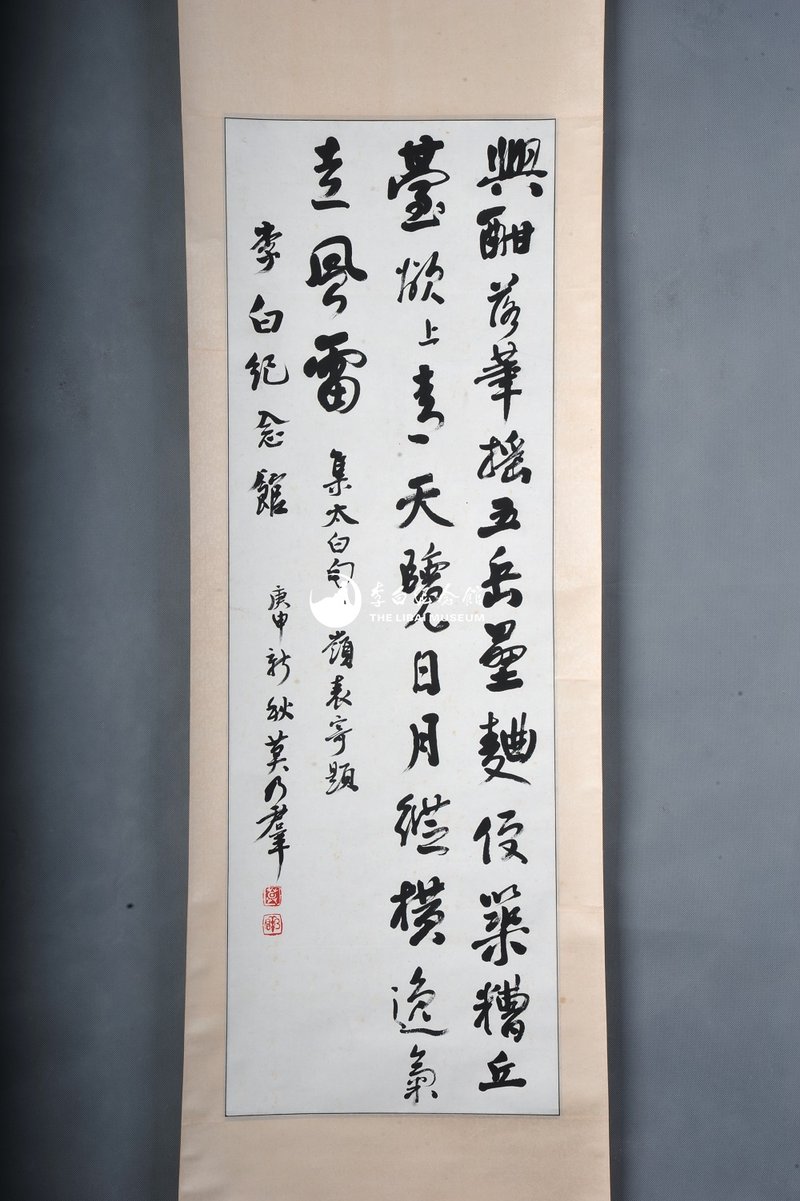 興酣落華搖五岳壘麴便築糟丘
臺欲上青天覽日月縱橫逸氣
走風雷 集太白句 嶺表寄題
李白紀念館 庚申新秋莫乃羣
李白纪念館
THE LIBAI MUSEUM